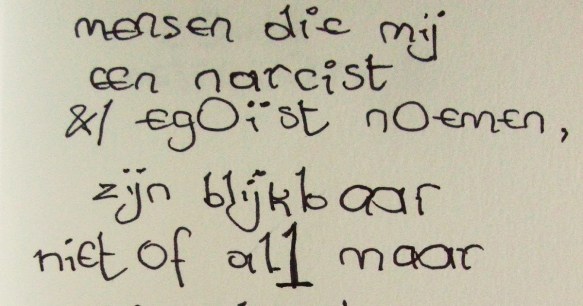 mensen die mij
een narcist
&/ egoïst noemen,
zijn blijkbaar
niet of all maar